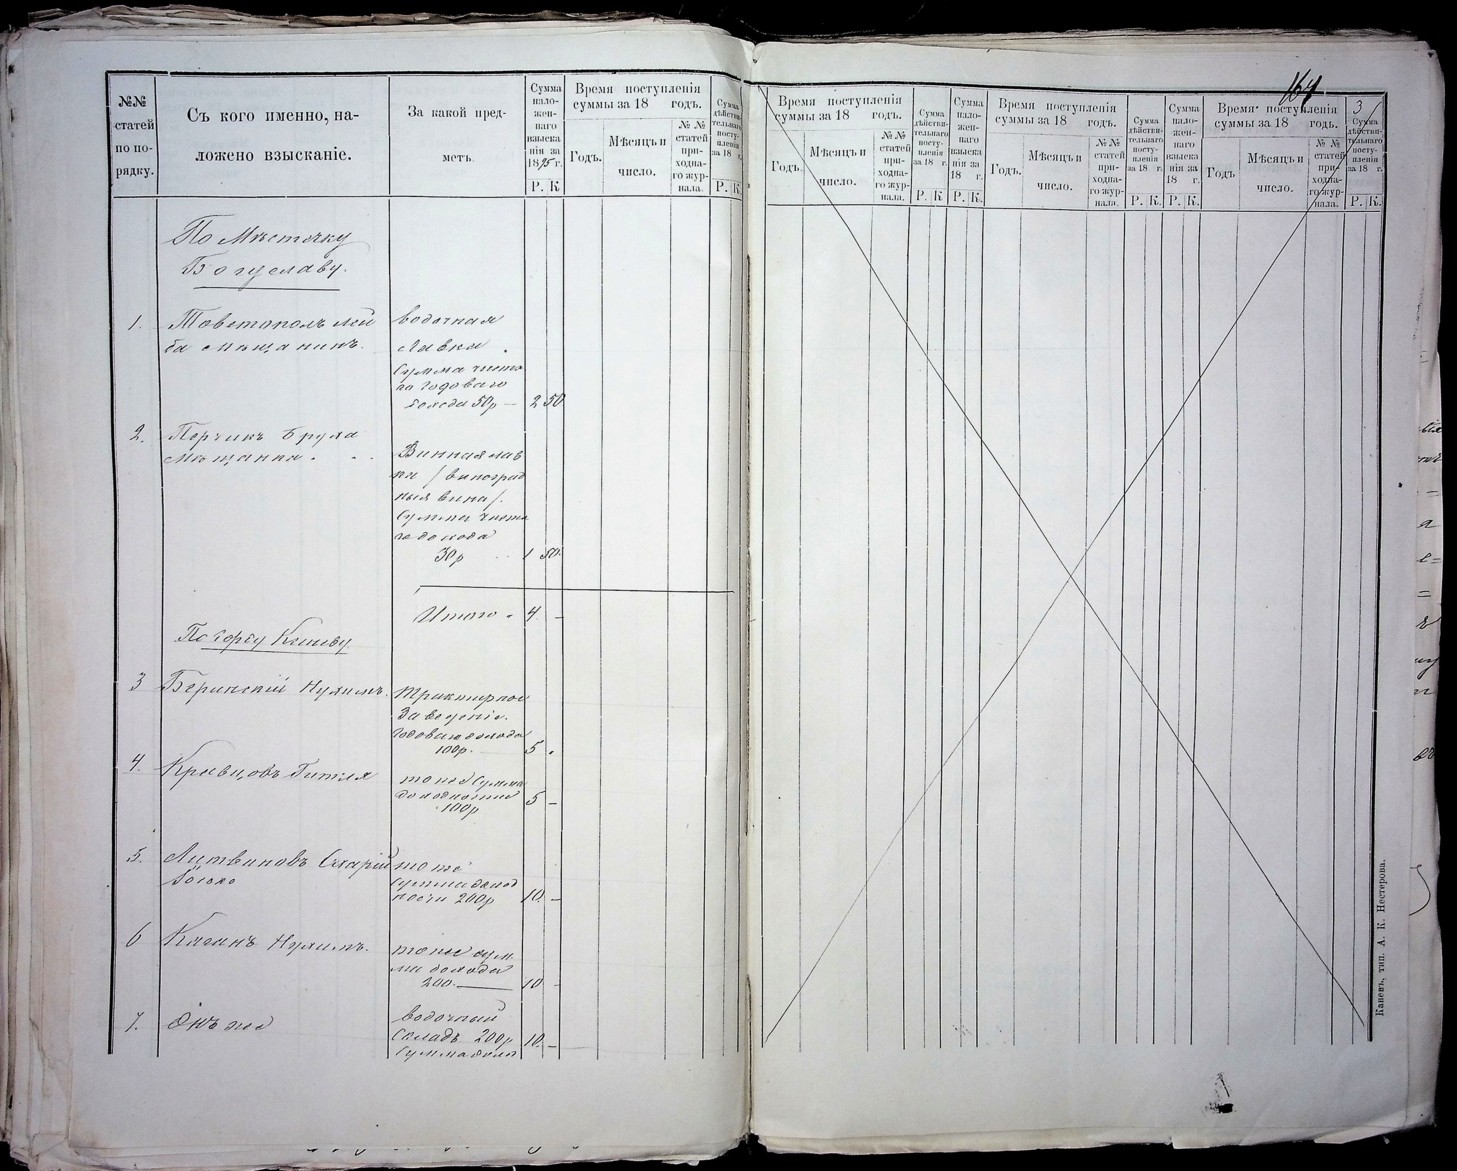 №№ статей по порядку.
Съ кого именно, наложено взысканіе.
За какой предметъ.
Сумма наложеннаго взысканія за 1895 г.
Р. К
Время поступленія суммы за 18 годъ.
Годъ.
Мѣсяцъ и число.
№ № статей приходнаго журнала.
Сумма дѣйствительнаго поступленія за 18 г.
Р. К.
По Мѣстечку
Богуславу.
1.
мѣщанинъ.
водочная
Лавка
Сумма чиста
го годоваго
дохода 50р — 2 50
2.
Мѣщанка
Винная лав
ка / виноград
ныя вина /.
Сумма чиста
го дохода
30р 1 50
Итого 4 –
По городу Каневу
3 Беринскій Нухимъ.
трактирное
Заведеніе.
годоваго дохода
100р. 5
4. Кравцовъ
тоже Сумма
доходности
100р 5 –
5. Литвиновъ
тоже
Сумма доход
ности 200р 10 –
6 Каганъ Нухимъ.
тоже сум
ма дохода
200. 10 –
7. Онъ же
водочный
Складъ 200р 10 –
Сумма
164
3
Время поступленія суммы за 18 годъ.
Годъ.
Мѣсяцъ и число.
№ № статей приходнаго журнала.
Сумма дѣйствительнаго поступленія за 18 г.
Р. К
Сумма наложеннаго взысканія за 18 г.
Р. К.
Время поступленія суммы за 18 годъ.
Годъ.
Мѣсяцъ и число.
№ № статей приходнаго журнала.
Сумма дѣйствительнаго поступленія за 18 г.
Р. К.
Сумма наложеннаго взысканія за 18 г.
Р. К.
Время поступленія суммы за 18 годъ.
Годъ
Мѣсяцъ и число.
№ № статей приходнаго журнала.
Сумма дѣйствительнаго поступленія за 18 г.
Р. К.
Каневъ, тип. А. К. Нестерова.